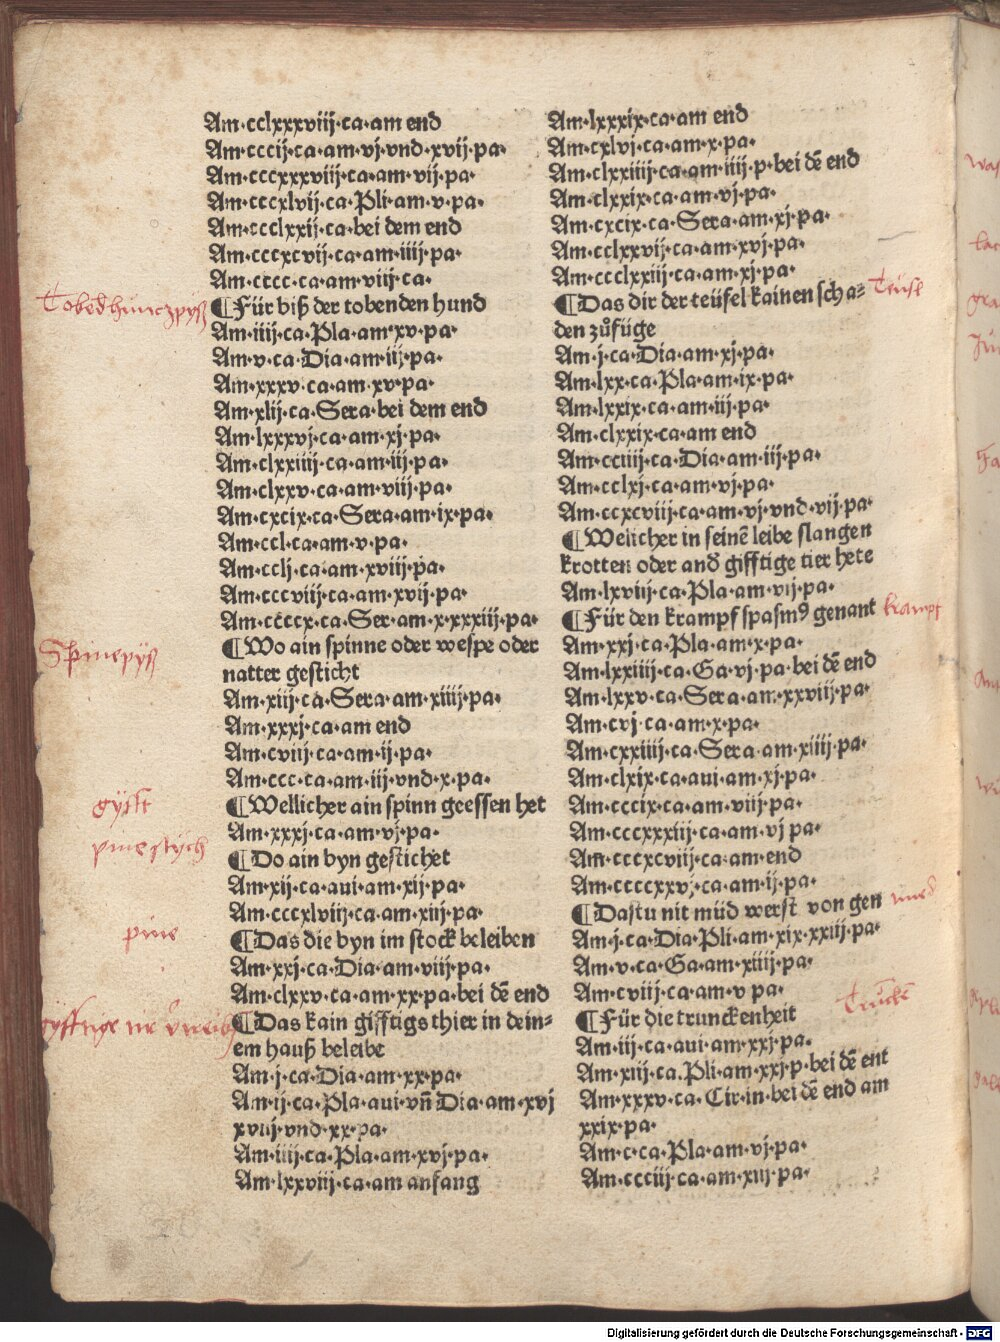 Am·cclxxxviij·ca·am end
Am·cccij·ca·am·vj·vnd·xvij·pa·
Am·cccxxxviij·ca·am·vij·pa·
Am·cccxlvij·ca·Pli·am·v·pa·
Am·ccclxxij·ca·bei dem end
Am·cccxcvij·ca·am·iiij·pa·
Am·cccc·ca·am·viij·ca·
¶Für biß der tobenden hund
Am·iiij·ca·Pla·am·xv·pa·
Am·v·ca·Dia·am·iij·pa·
Am·xxxv·ca·am·xv·pa·
Am·xlij·ca·Sera·bei dem end
Am·lxxxvj·ca·am·xj·pa·
Am·clxxiiij·ca·am·iij·pa·
Am·clxxv·ca·am·viij·pa·
Am·cxcix·ca·Sera·am·ix·pa·
Am·ccl·ca·am·v·pa·
Am·cclj·ca·am·xviij·pa·
Am·cccviij·ca·am·xvij·pa·
Am·ccccx·ca·Ser·am·x·xxxiij·pa·
¶Wo ain spinne oder wespe oder
natter gesticht
Am·xiij·ca·Sera·am·xiiij·pa·
Am·xxxj·ca·am end
Am·cviij·ca·am·ij·pa·
Am·ccc·ca·am·iij·vnd·x·pa·
¶Wellicher ain spinn geessen het
Am·xxxj·ca·am·vj·pa·
¶Do ain byn gestichet
Am·xij·ca·aui·am·xij·pa·
Am·cccxlviij·ca·am·xiij·pa·
¶Das die byn im stock beleiben
Am·xxj·ca·Dia·am·viij·pa·
Am·clxxv·ca·am·xx·pa·bei dē end
¶Das kain gifftigs thier in dein⸗
em hauß beleibe
Am·j·ca·Dia·am·xx·pa·
Am·ij·ca·Pla·aui·vn̄ Dia·am·xvj
xviij·vnd·xx·pa·
Am·iiij·ca·Pla·am·xvj·pa·
Am·lxxviij·ca·am anfang
Am·lxxxix·ca·am end
Am·cxlvj·ca·am·x·pa·
Am·clxxiiij·ca·am·iiij·p·bei dē end
Am·clxxix·ca·am·vj·pa·
Am·cxcix·ca·Sera·am·xj·pa·
Am·cclxxvij·ca·am·xvj·pa·
Am·ccclxxiij·ca·am·xj·pa·
¶Das dir der teüfel kainen scha⸗
den zůfüge
Am·j·ca·Dia·am·xj·pa·
Am·lxx·ca·Pla·am·ix·pa·
Am·lxxix·ca·am·iij·pa·
Am·clxxix·ca·am end
Am·cciiij·ca·Dia·am·iij·pa·
Am·cclxj·ca·am·vj·pa·
Am·ccxcviij·ca·am·vj·vnd·vij·pa·
¶Welicher in seinē leibe slangen
krotten oder and̄ gifftige tier hete
Am·lxviij·ca·Pla·am·vij·pa·
¶Für den krampf spasm⁹ genant
Am·xxj·ca·Pla·am·x·pa·
Am·lxxiiij·ca·Ga·vj·pa·bei dē end
Am·lxxv·ca·Sera·am·xxviij·pa·
Am·cvj·ca·am·x·pa·
Am·cxxiiij·ca·Sera·am·xiiij·pa·
Am·clxix·ca·aui·am·xj·pa·
Am·cccix·ca·am·viij·pa·
Am·cccxxxiij·ca·am·vj pa·
Am·cccxcviij·ca·am·end
Am·ccccxxvj·ca·am·ij·pa·
¶Dastu nit müd werst von gen
Am·j·ca·Dia·Pli·am·xix·xxiij·pa·
Am·v·ca·Ga·am·xiiij·pa·
Am·cviij·ca·am·v pa·
¶Für die trunckenheit
Am·iij·ca·aui·am·xxj·pa·
Am·xiij·ca·Pli·am·xxj·p·bei dē ent
Am·xxxv·ca·Cir·in·bei dē end am
xxix·pa·
Am·c·ca·Pla·am·vj·pa·
Am·ccciij·ca·am·xiij·pa·
Teüfl
krampf
Spinepyß
pine
Digitalisierung gefördert durch die Deutsche Forschungsgemeinschaft - DFG